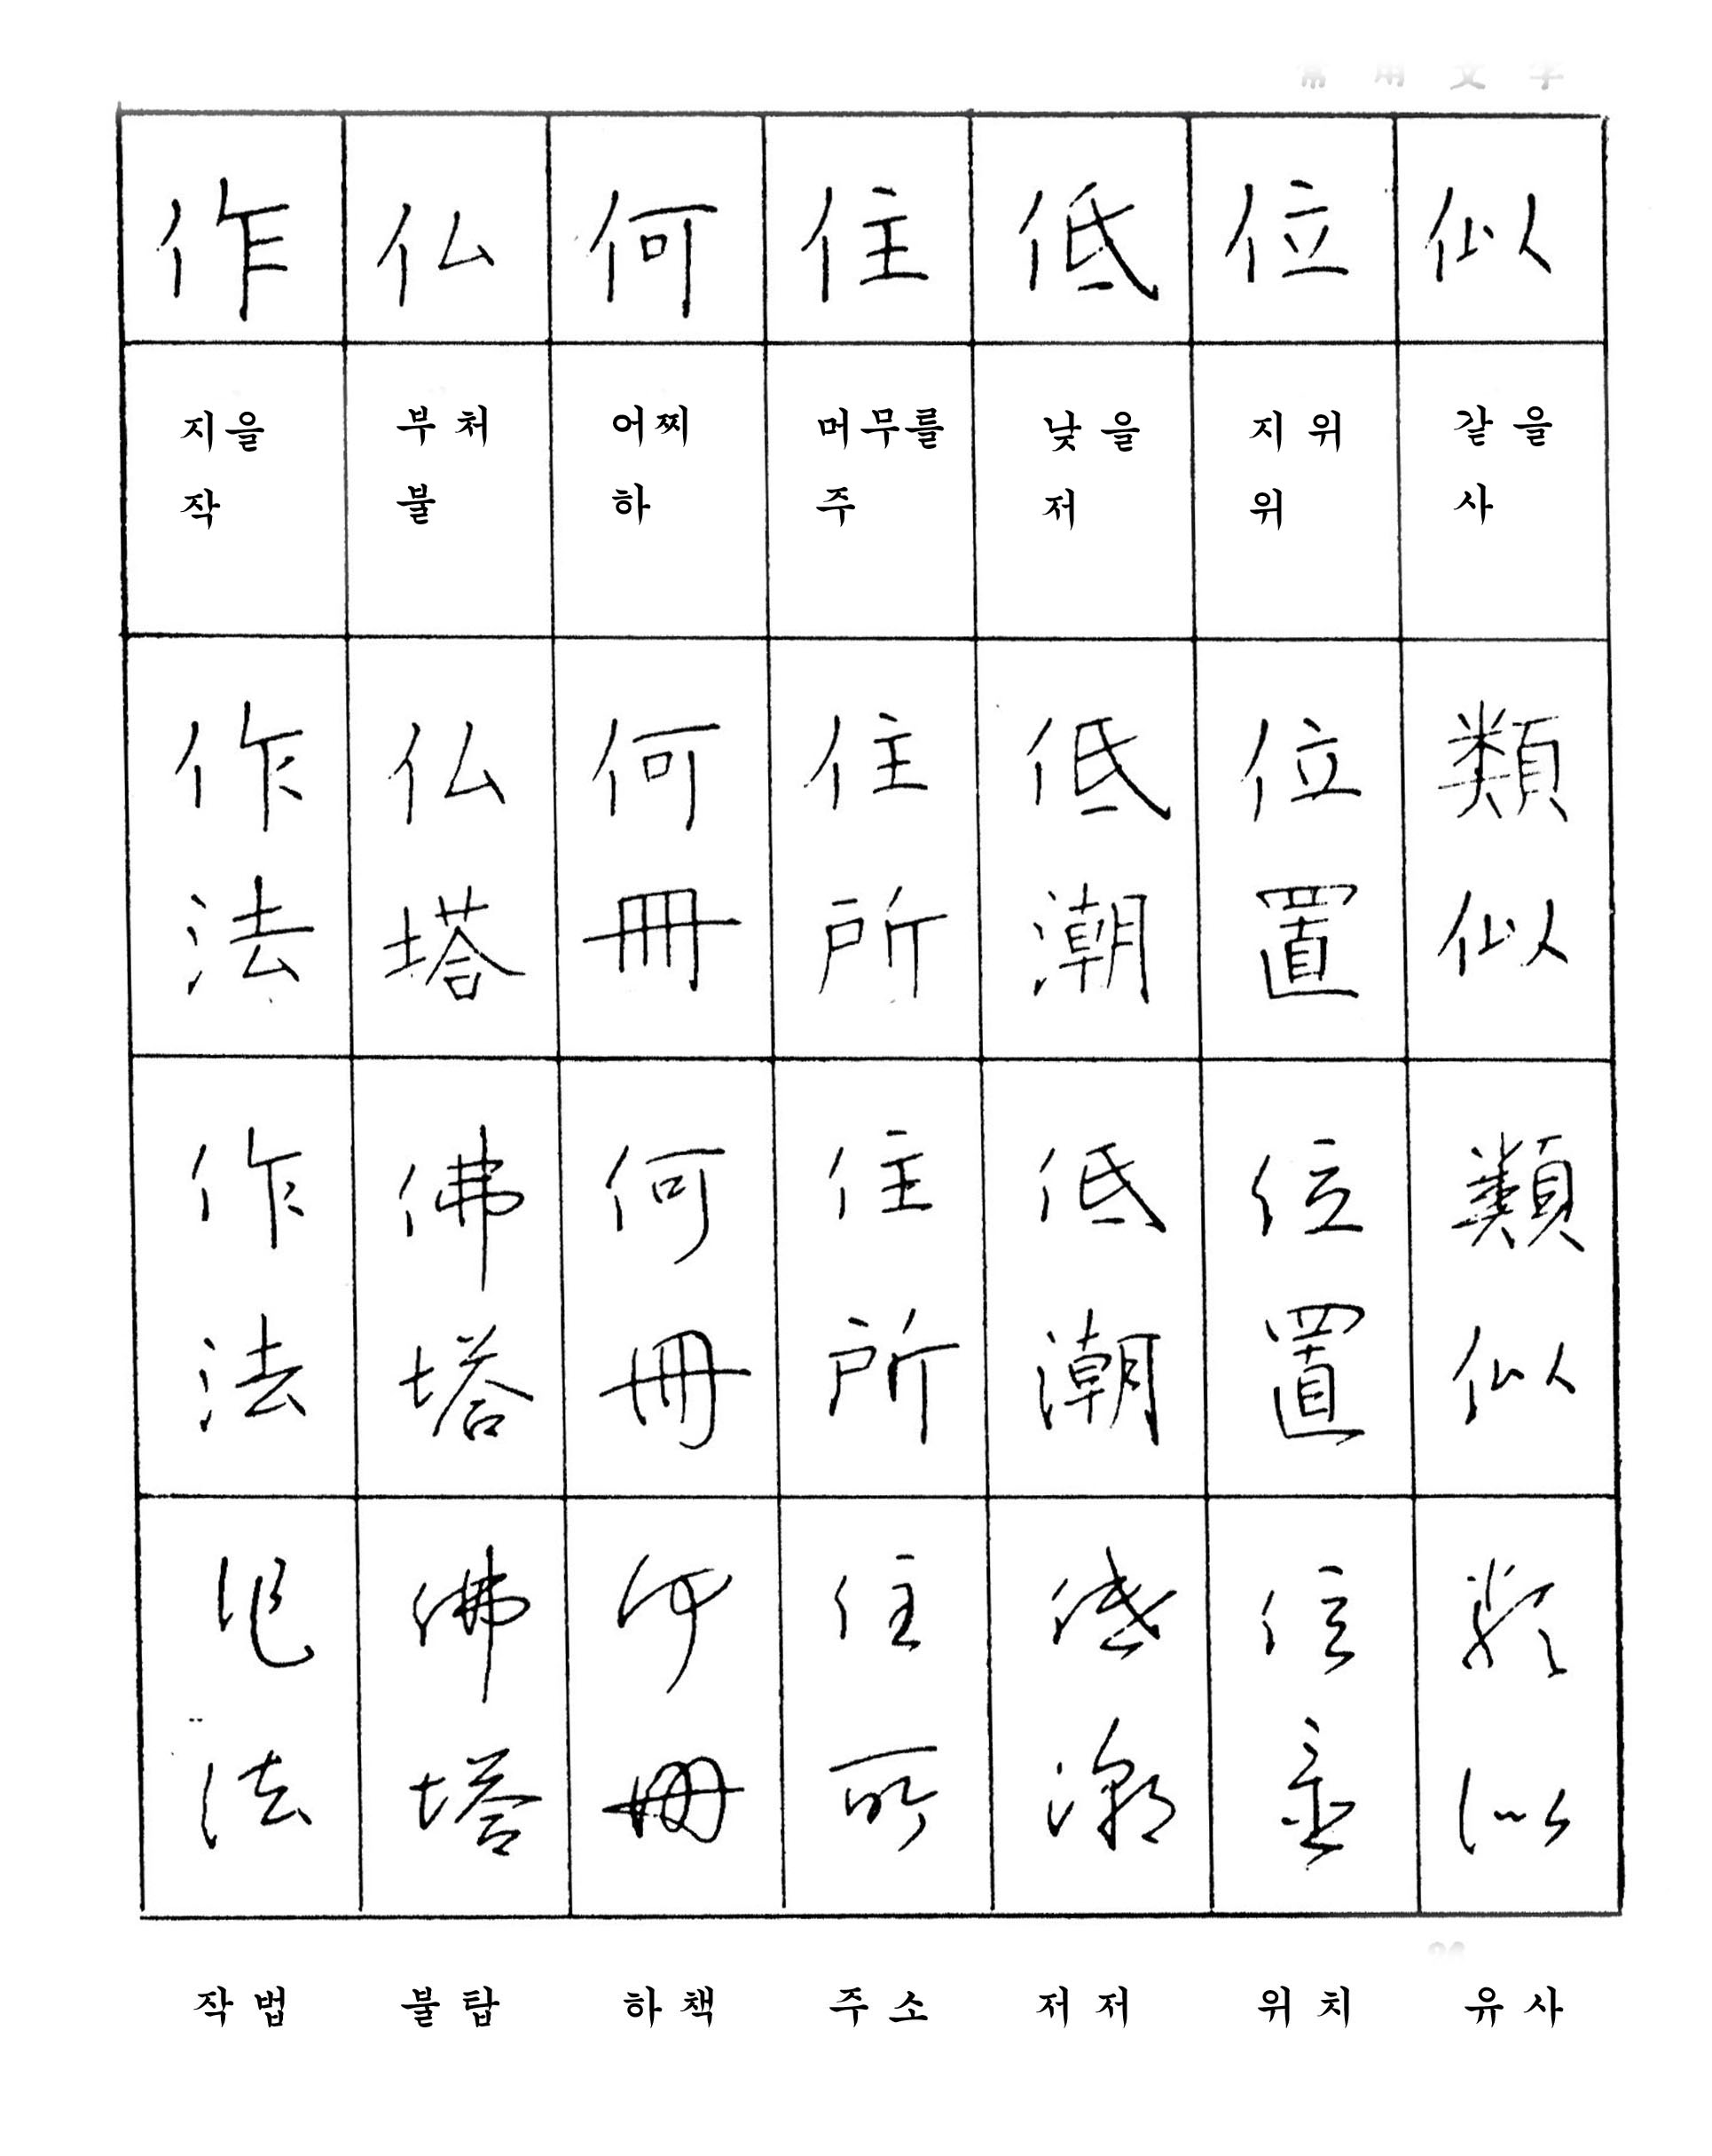 常用文字
作 仏 何 住 低 位 似
지을 부처 어찌 머무를 낮을 지위 같을
작 불 하 주 저 위 사
作 仏 何 住 低 位 類
法 塔 冊 所 潮 置 似
作 佛 何 住 低 位 類
法 塔 冊 所 潮 置 似
作 佛 何 住 低 位 類
法 塔 冊 所 潮 置 似
작법 불탑 하책 주소 저저 위치 유사